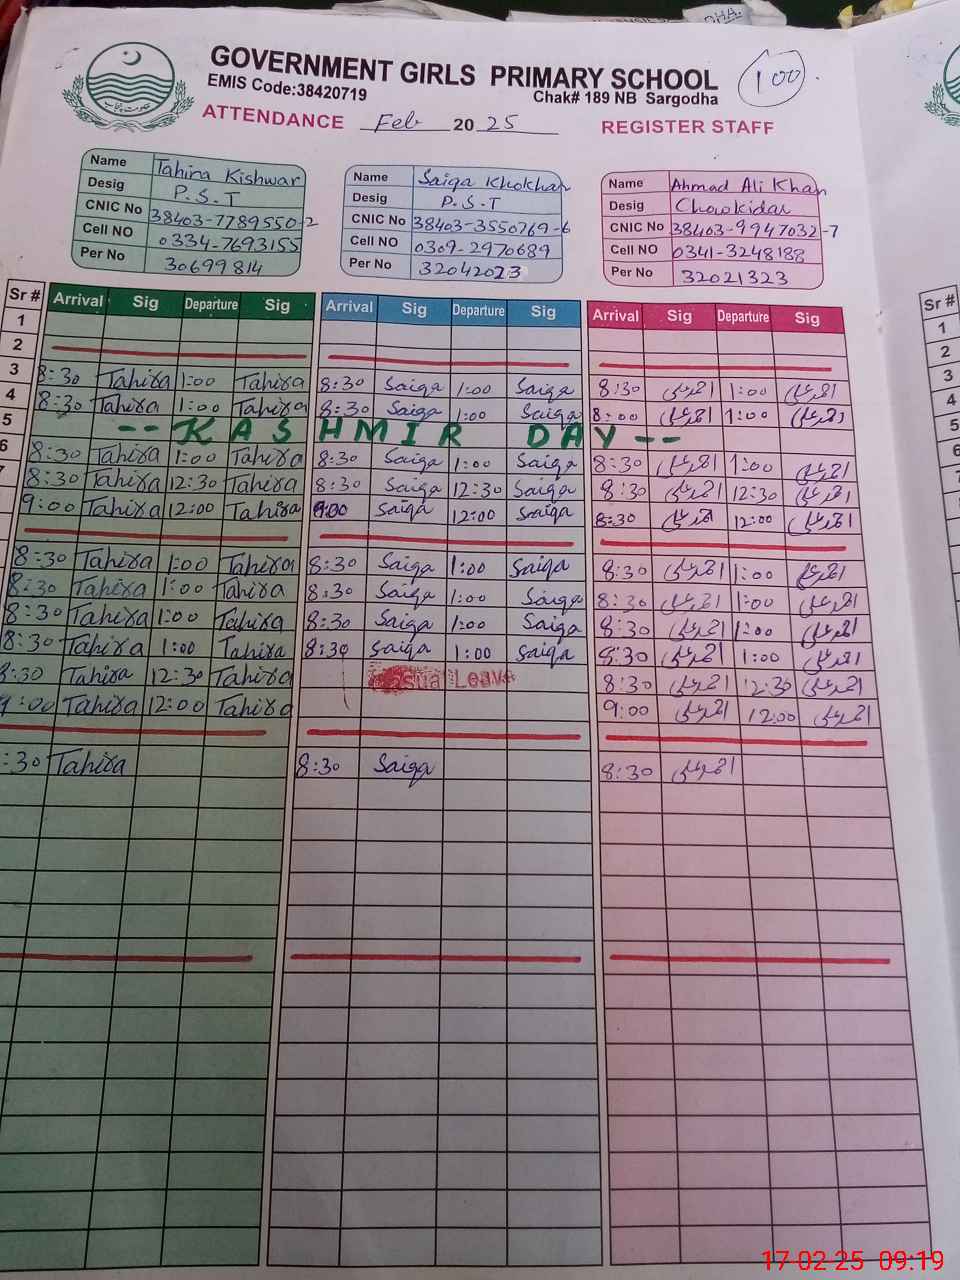 DHA.
GOVERNMENT GIRLS PRIMARY SCHOOL
100
EMIS Code:38420719
Chak# 189 NB Sargodha
ATTENDANCE Feb 2025 REGISTER STAFF
Name Tahira Kishwar
Desig P.S.T
CNIC No 38403-7789550-2
Cell NO 0334-7693155
Per No 30699814
Name Saiqa Khokhar
Desig P.S.T
CNIC No 38403-3550769-6
Cell NO 0309-2970689
Per No 32042023
Name Ahmad Ali Khan
Desig Chowkidar
CNIC No 38403-9947032-7
Cell NO 0341-3248188
Per No 32021323
Sr # Arrival Sig Departure Sig Arrival Sig Departure Sig Arrival Sig Departure Sig Sr #
1 1
2 2
3 8:30 Tahira 1:00 Tahira 8:30 Saiqa 1:00 Saiqa 8:30 احمد علی 1:00 احمد علی 3
4 8:30 Tahira 1:00 Tahira 8:30 Saiqa 1:00 Saiqa 8:00 احمد علی 1:00 احمد علی 4
5 -- KASHMIR DAY -- 5
6 8:30 Tahira 1:00 Tahira 8:30 Saiqa 1:00 Saiqa 8:30 احمد علی 1:00 احمد علی 6
8:30 Tahira 12:30 Tahira 8:30 Saiqa 12:30 Saiqa 8:30 احمد علی 12:30 احمد علی
9:00 Tahira 12:00 Tahira 9:00 Saiqa 12:00 Saiqa 8:30 احمد علی 12:00 احمد علی
8:30 Tahira 1:00 Tahira 8:30 Saiqa 1:00 Saiqa 8:30 احمد علی 1:00 احمد علی
8:30 Tahira 1:00 Tahira 8:30 Saiqa 1:00 Saiqa 8:30 احمد علی 1:00 احمد علی
8:30 Tahira 1:00 Tahira 8:30 Saiqa 1:00 Saiqa 8:30 احمد علی 1:00 احمد علی
8:30 Tahira 1:00 Tahira 8:30 Saiqa 1:00 Saiqa 8:30 احمد علی 1:00 احمد علی
8:30 Tahira 12:30 Tahira Leave 8:30 احمد علی 12:30 احمد علی
9:00 Tahira 12:00 Tahira 9:00 احمد علی 12:00 احمد علی
:30 Tahira 8:30 Saiqa 8:30 احمد علی
17 02 25 09:19